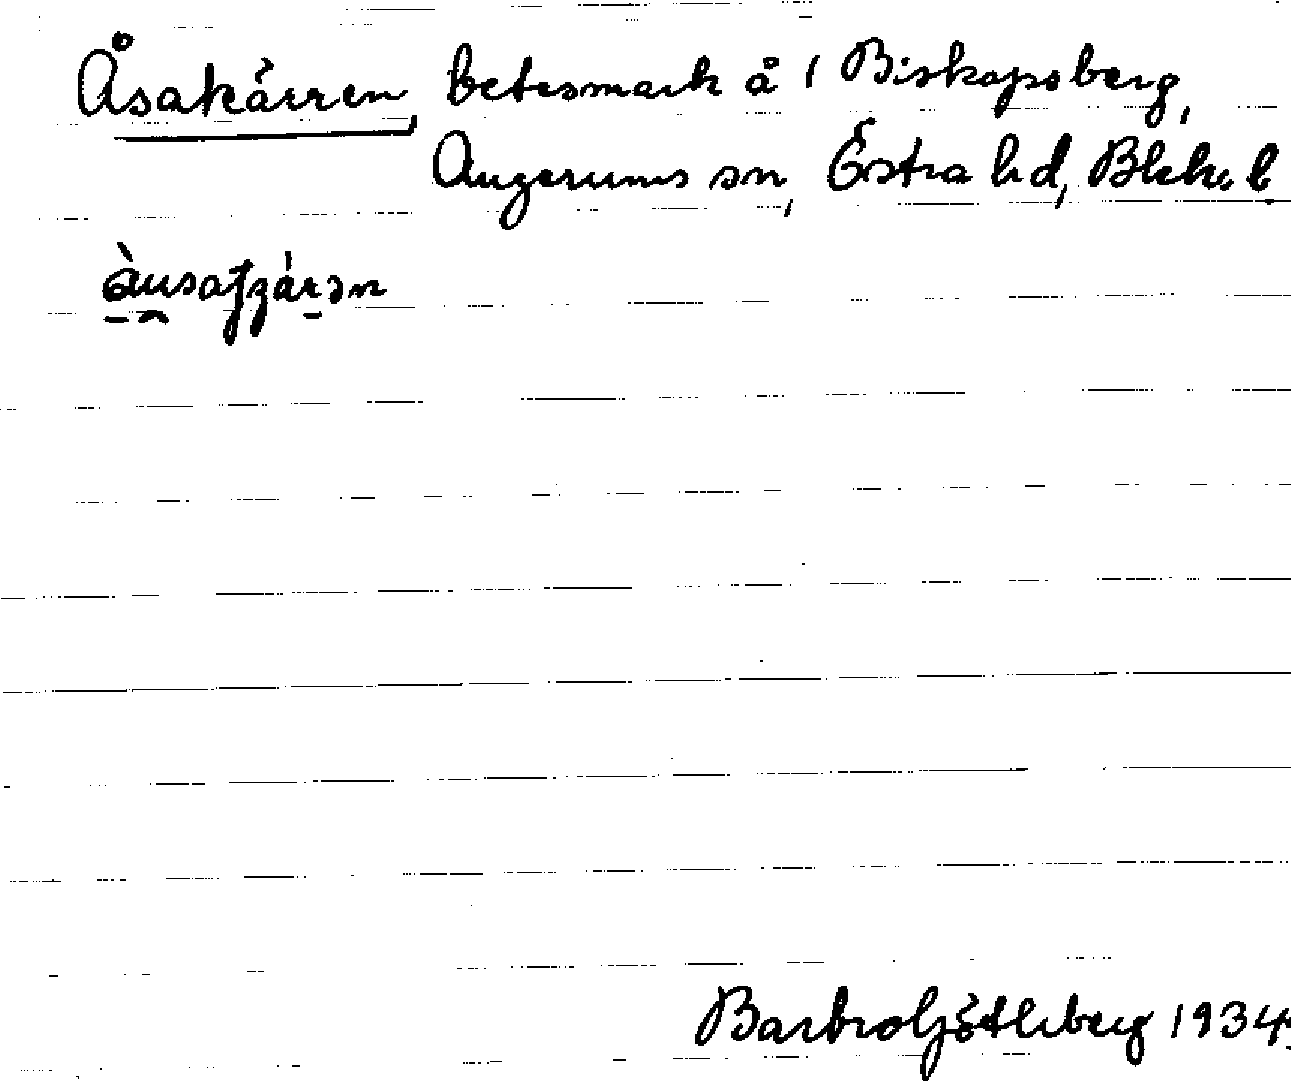 Åsakärren, betesmark å 1 Biskopsberg,
Augerums sn, Östra hd, Blek. l
Barbro Götlberg 1934